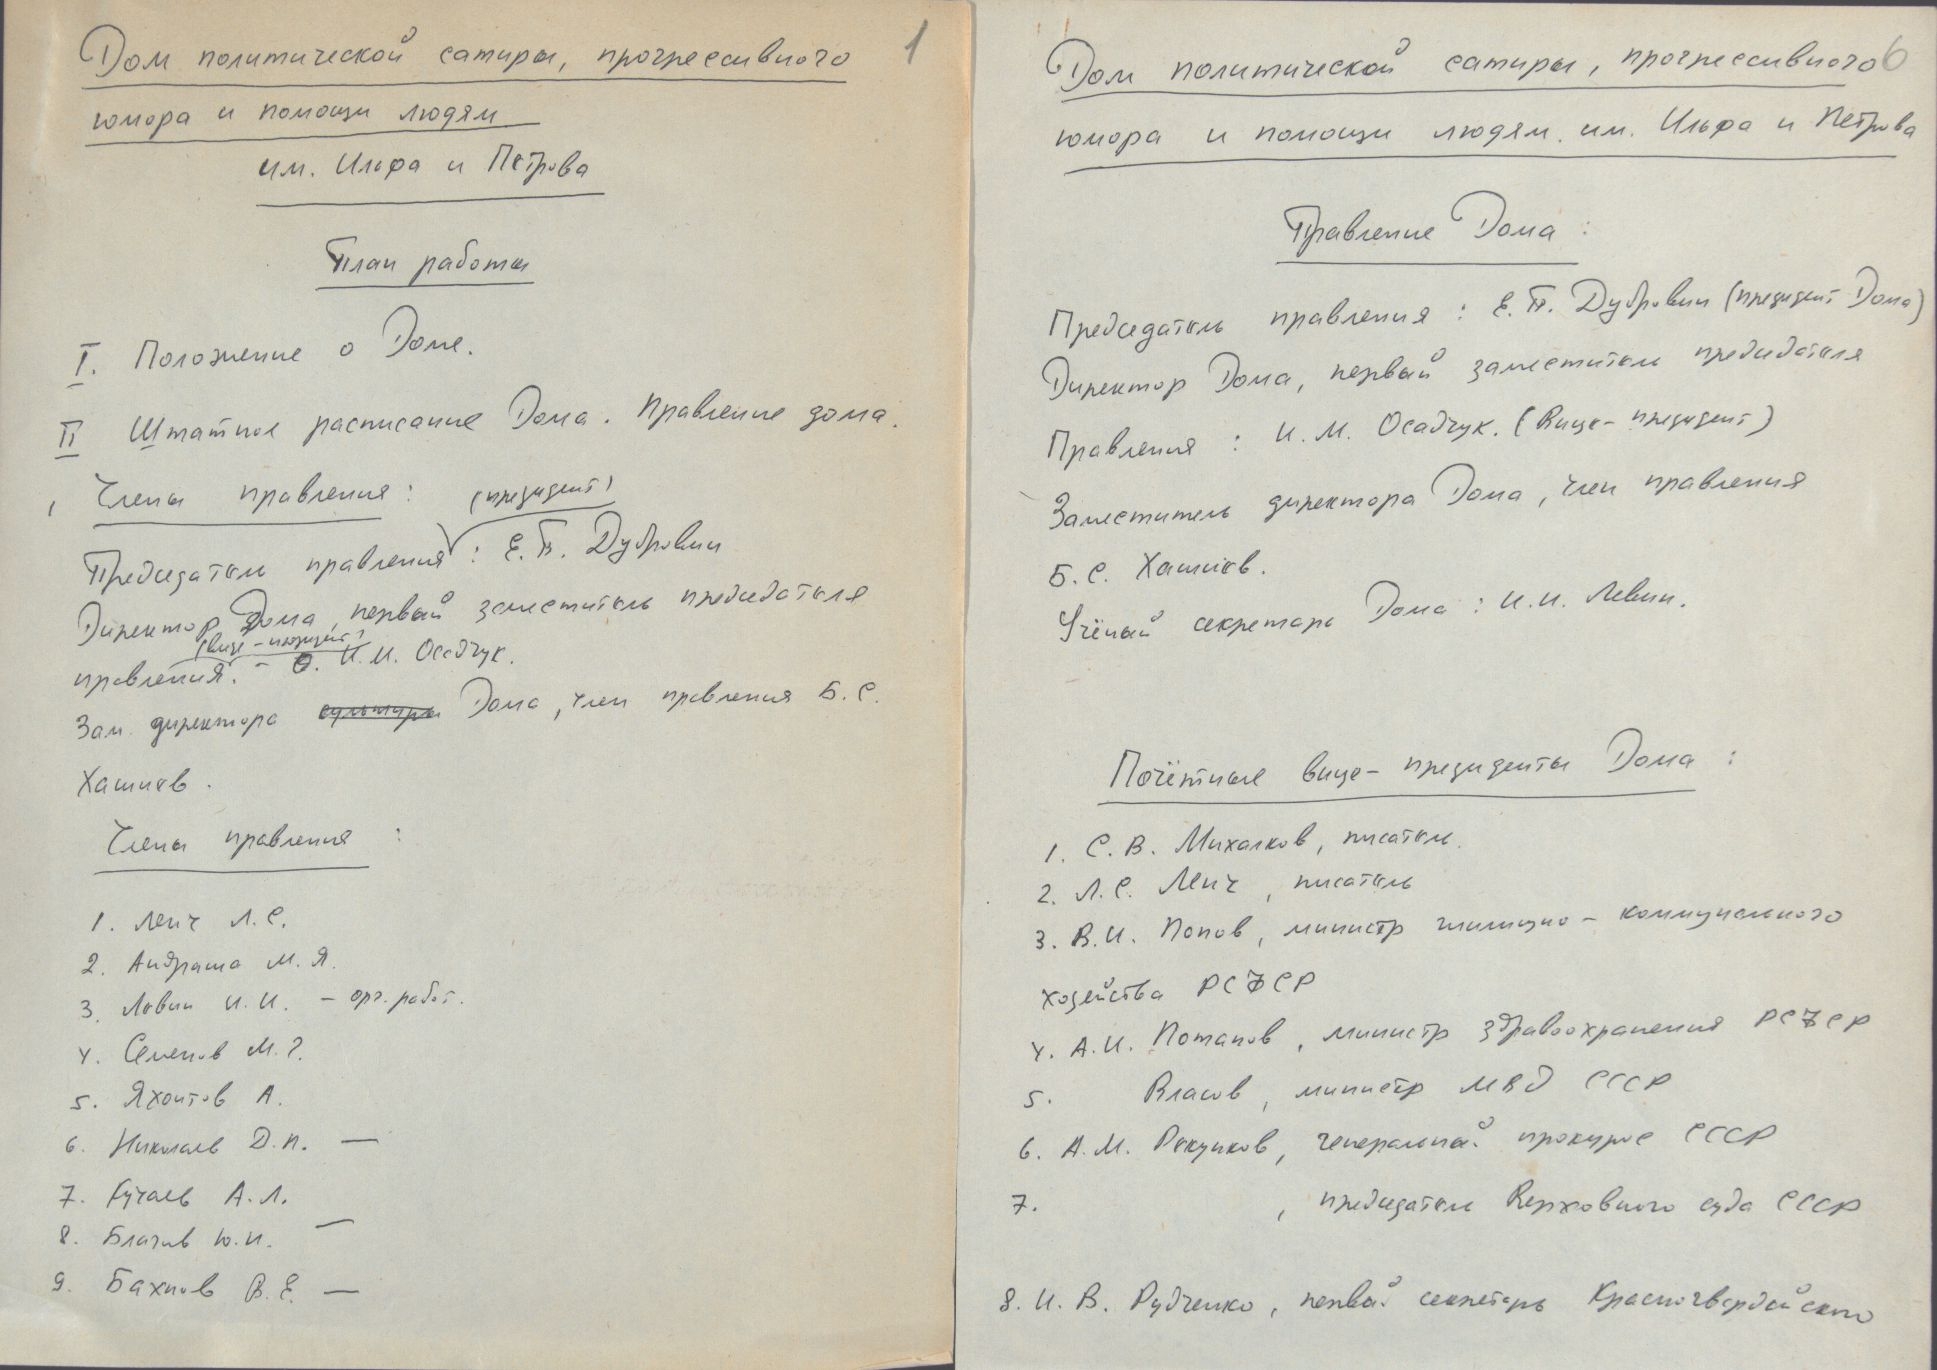 1
Дом политической сатиры, прогрессивного
юмора и помощи людям
им. Ильфа и Петрова
План работы
I. Положение о Доме.
II Штатное расписание Дома. Правление дома.
Члены правления:
(президент)
Председатель правления : Е. П. Дубровин
Директор Дома, первый заместитель председателя
(вице-президент)
правления. – И. М. Осадчук.
Зам. директора культуры Дома, член правления Б. С.
Хашиев.
Члены правления :
1. Ленч Л. С.
2. Андраша М. Я.
3. Левин И. И. – орг. работ.
4. Семенов М. Г.
5. Яхонтов А.
6. Николаев Д. П. —
7. Кучаев А. Л.
8. Благов Ю. Н. —
9. Бахнов В. Е. —
6
Дом политической сатиры, прогрессивного
юмора и помощи людям им. Ильфа и Петрова
Правление Дома :
Председатель правления : Е. П. Дубровин (президент Дома)
Директор Дома, первый заместитель председателя
Правления : И. М. Осадчук. (Вице-президент)
Заместитель директора Дома, член правления
Б. С. Хашиев.
Учёный секретарь Дома : И. И. Левин.
Почётные вице-президенты Дома :
1. С. В. Михалков, писатель.
2. Л. С. Ленч, писатель
3. В. И. Попов, министр жилищно-коммунального
хозяйства РСФСР
4. А. И. Потапов, министр здравоохранения РСФСР
5. Власов, министр МВД СССР
6. А. М. Рекунков, генеральный прокурор СССР
7. , председатель Верховного суда СССР
8. И. В. Рудченко, первый секретарь Красногвардейского